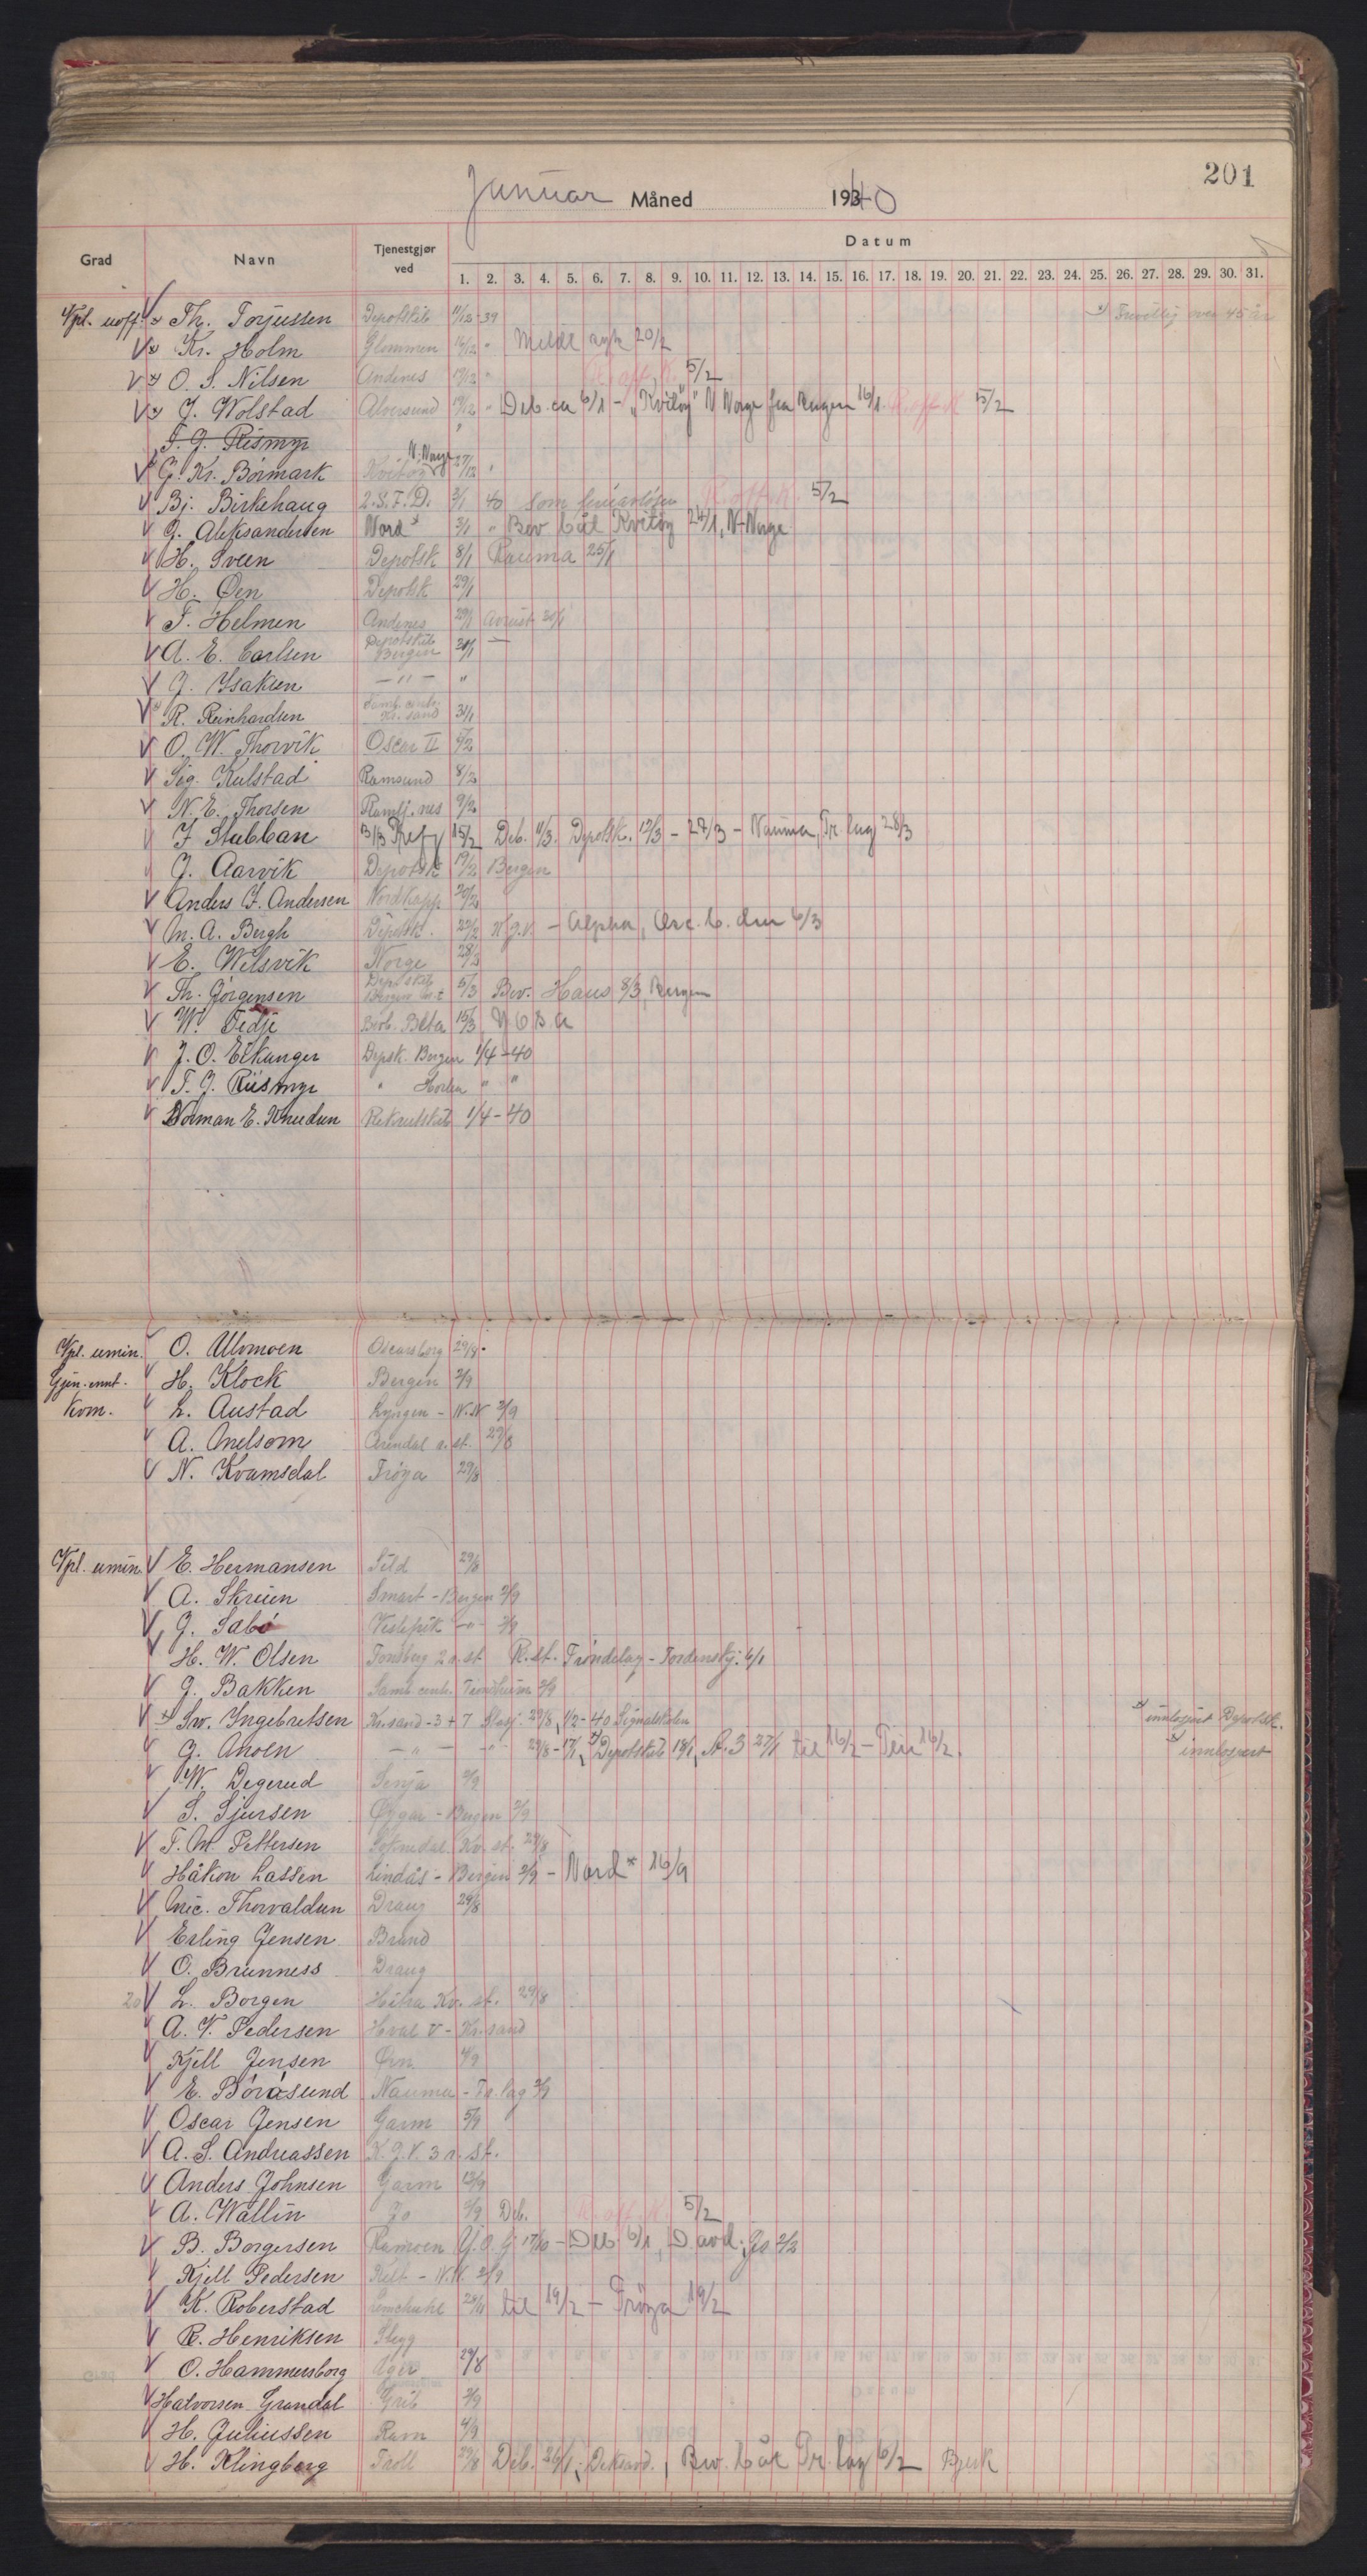 201
Januar Måned 1940
Grad Navn Tjenestgjør ved Datum
1. 2. 3. 4. 5. 6. 7. 8. 9. 10. 11. 12. 13. 14. 15. 16. 17. 18. 19. 20. 21. 22. 23. 24. 25. 26. 27. 28. 29. 30. 31.
Vpl. uoff. x) Th. Torjussen Depotskib 11/12-39 x) Frivillig over 45 år
x) Kr. Holm Glommen "
x) O. S. Nilsen Andenes " K. off. K. 5/2
x) J. Wolstad Alversund " Deb. ca 6/1 - "Kvitøy" N Norge fra Bergen 16/1 K. off. K 5/2
T. J. Riismyr
G. Kr. Børmark Kvitøy N. Norge 27/12 "
Bj. Birkehaug 2. S. F. D. 3/1 40 K. off. K. 5/2
G. Aleksandersen Nord * 3/1 " Bev båt Kvitøy 24/1, N-Norge
H. Sveen Depotsk 8/1 Rauma 25/1
H. Øen Depotsk 29/1
F. Helmen Andenes 29/1
A. E. Carlsen Depotskib Bergen 30/1 —
J. Isaksen — " — "
R. Reinhardsen Kr. sand 31/1
O. W. Thorvik Oscar II 5/2
Sig. Kulstad Ramsund 8/2
N. E. Thorsen 9/2
J Stubban B/B 15/2 Deb. 11/3. Depotsk. 12/3 - 27/3 - Nauma, Tr. lag 28/3
J. Aarvik Depotsk 19/2 Bergen
Anders J. Andersen Nordkapp 20/2
M. A. Bergh Depotsk. 22/2 H.J.V - Alpha, 6/3
E. Wilsvik Norge 28/2
Th. Jørgensen Depotskib Bergen 5/3 Bev. Haus 8/3, Bergen
W. Tedje Bev.b. Beta 15/3
J. O. Eikanger Depsk. Bergen 1/4-40
T. J. Riismyr " Horten " "
Norman E. Knudsen Rekrutskib 1/4-40
Vpl. umin. O. Ullomoen Oscarsborg 29/8.
H. Klock Bergen 2/9
Kom. L. Austad Lyngen - N.N 2/9
A. Anelsom Arendal a. st. 29/8
N. Kvamsdal Frøya 29/8
Vpl. umin E. Hermansen Sild 29/8
A. Skruen Smart - Bergen 2/9
J. Sabø Veslefrik -"- 2/9
H. W. Olsen Tønsberg 2 a. st R. st. Trøndelag - Tordenskj. 6/1
J. Bakken Samb cent. Trondheim 2/9
x) Sv. Ingebretsen Kr.sand - 3 + 7 Slagj. 29/8, 1/2-40 Signalskolen x) innlosjert Depotsk.
G. Anoen — " — -"- 29/8-17/1, x) Depotskib 18/1, A. 3 27/1 til 16/2 - Teie 16/2. x) innlosjert
W. Degerud Senja 2/9
S. Sjursen Øygar - Bergen 2/9
T. M Pettersen Sokndal Kv. st. 29/8
Håkon Lassen Lindås - Bergen 2/9 - Nord * 16/9
Nic. Thorvaldsen Draug 29/8
Erling Jensen Brand
O. Brunness Draug
20 L. Borgen Hitra Kv. st. 29/8
A. V. Pedersen Hval V - Kr.sand
Kjell Jensen Ørn 4/9
E. Boråsund Nauma - Tr. lag 2/9
Oscar Jensen Garm 5/9
A. S. Andreassen K. J. V. 3 a. st.
Anders Johnsen Garm 13/9
A. Wallin Jo 2/9 Deb. K. off. K. 5/2
B. Borgersen Ramoen Y. O. G 17/10 - Deb 6/1, D. avd. Jo 2/2
Kjell Pedersen Kelt - N.N. 2/9
K. Roberstad 29/11 til 19/2 - Frøya 19/2
R. Henriksen Skegg
O. Hammersborg Uger 29/8
Halvorsen Grandal Grib 2/9
H. Juliussen Ram 4/9
H. Klingberg Troll 29/8 Deb. 26/1; Deksavd., Bev. båt Tr. lag 6/2 Bjerk